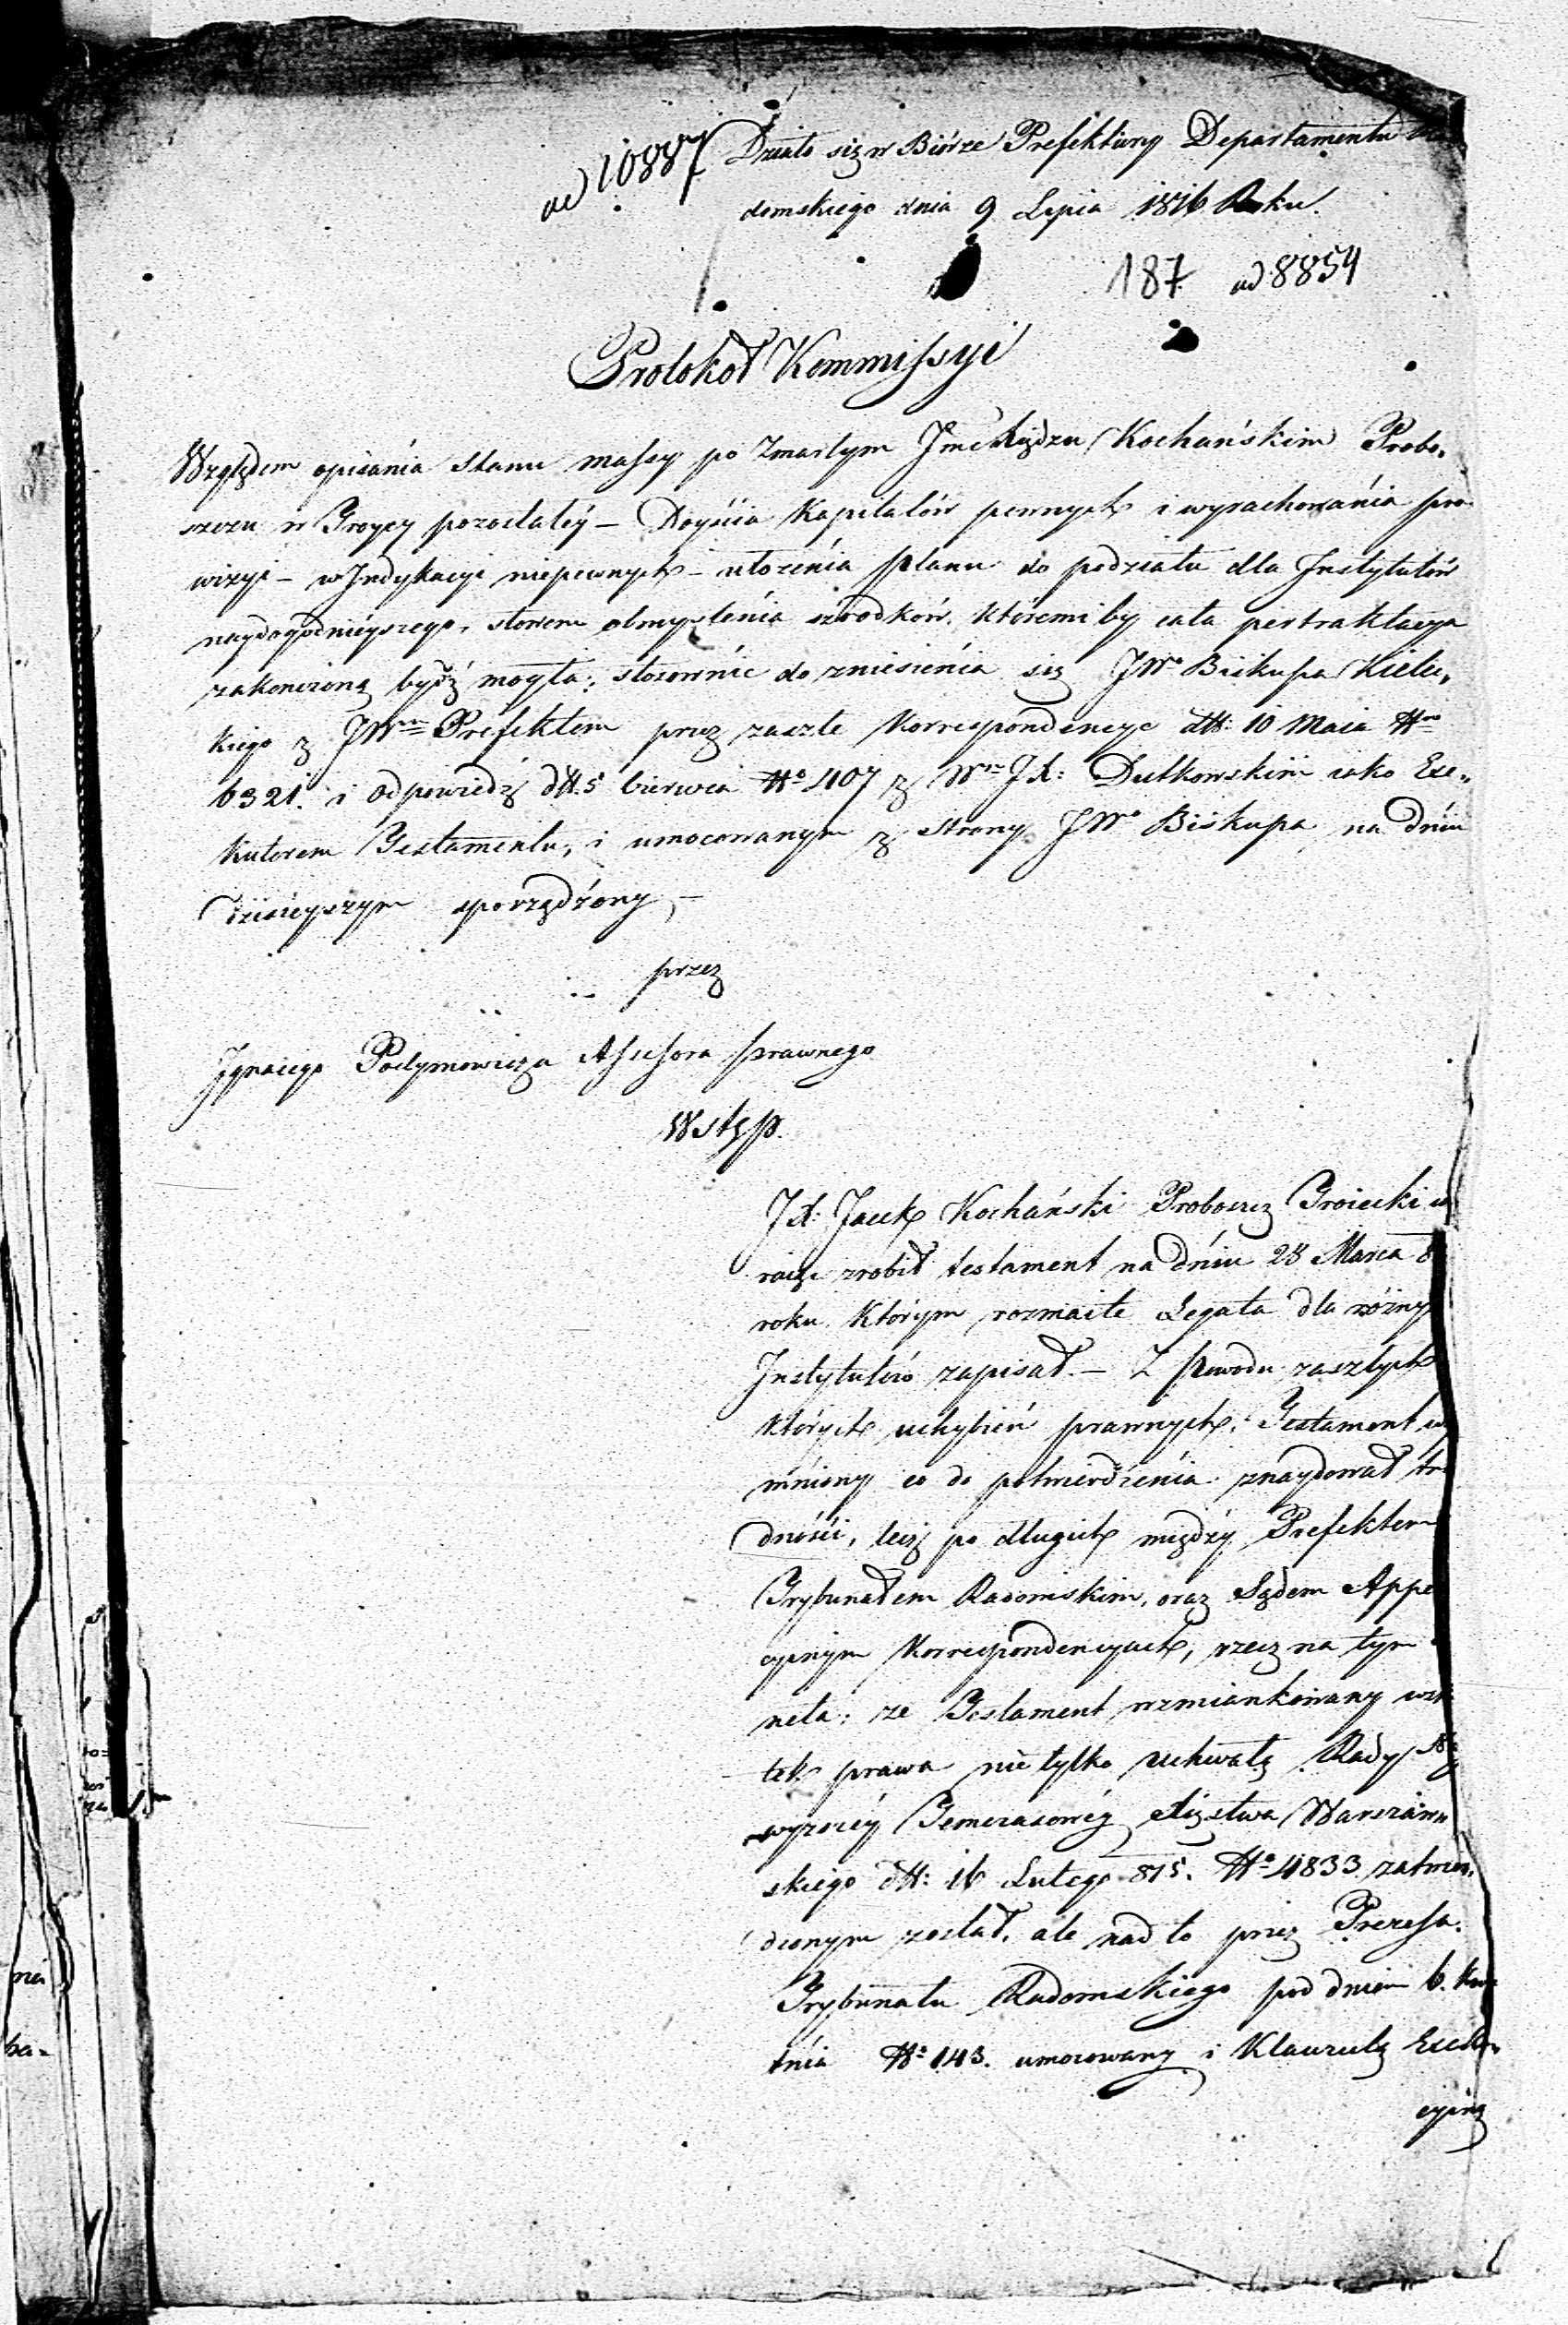 ad 10887 Działo się w Biórze Prefektury Departamentu
domskiego dnia 9 Lipia 1816 Roku.
187 ad 8854
Protokół Kommissyi
Względem opisánia stanu massy po Zmarłym Jmć Księdzu Kochańskim Probo„
szczu w Troycy pozostałéy – Doyścia Kapitałów pewnych i wyrachowánia pro
wizyi – w Jndykacyi niepewnych – ułożénia planu do podziału dla Jnstytutów
naydogodniéyszego, słowem obmyślénia szrodków, któremi by cała pertraktacya
zakonczoną bydź mogła; stosownie do zniesiénia się JWo Biskupa Kielec„
kiego z JWm Prefektem przez zaszłe Korrespondencye dtt: 10 Maia Nro
6321. i odpowiedź dtt. 5 Czerwca No 407 z Wm JX: Dutkowskim iako Exe„
kutorem Testamentu, i umocowanym z strony JWo Biskupa na dniu
dzisieyszym sporządzony, –
przez
Jgnacego Podymowicza Assessora prawnego
Wstęp.
JX: Jacek Kochański Proboszcz Troiecki
zrobił testament na dniu 28 Marca 8
roku którym rozmaite Legata dla różnyc
Jnstytutów zapisał. – Z powodu zaszłych
których uchybień prawnych, Testament
mniony co do potwierdzénia znaydował tru
dności, lecz po długich między Prefektem
Trybunałem Radomskim, oraz Sądem Appel
cyinym Korrespondencyach, rzecz na tym
neła: że Testament wzmiankowany
tek prawa nie tylko uchwałą Rady Nay
wyższéy Tymczasowéy Xięstwa Warszaw„
skiego dtt: 16 Lutego 815. No 4833 zatwier„
dzonym został, ale nad to przez Prezesa
Trybunału Radomskiego pod dniem 6. Kwie
tnia No 143. umocowany i Klauzulą Exeku„
cyiną